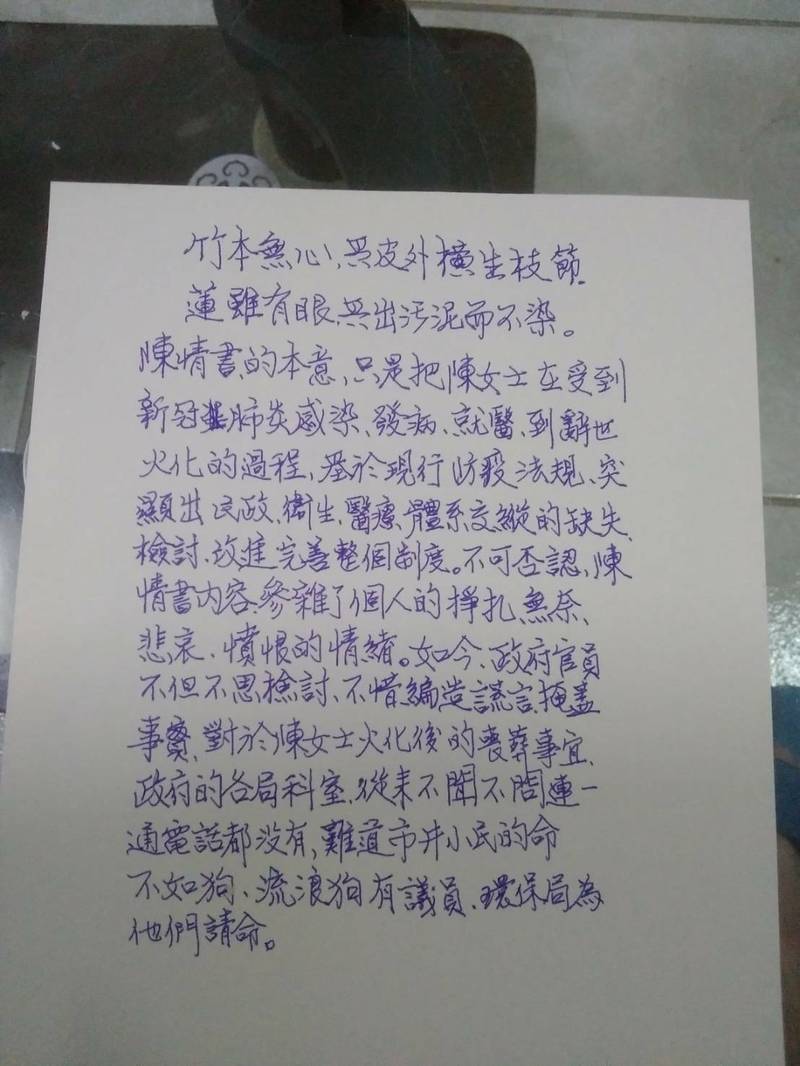 竹本無心,其皮外橫生枝節.
蓮雖有眼,其出污泥而不染。
陳情書的本意,只是把陳女士在受到
新冠肺炎感染、發病、就醫、到辭世
火化的過程,基於現行防疫法規、突
顯出民政、衛生、醫療、體系交縱的缺失、
檢討、改進完善整個制度。不可否認,陳
情書内容、參雜了個人的掙扎、無奈、
悲哀、憤恨的情緒。如今、政府官員
不但不思檢討、不惜編造謊言、掩盖
事實、對於陳女士火化後的喪葬事宜、
政府的各局科室、從未不聞不問連一
通電話都没有,難道市井小民的命
不如狗、流浪狗有議員、環保局為
他們請命。